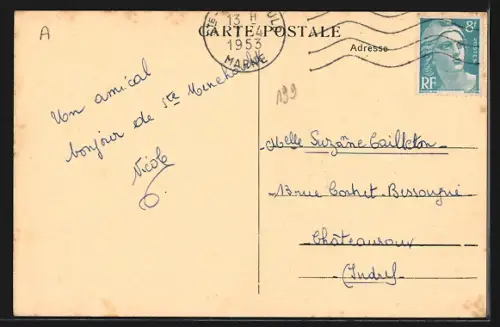 A
CARTE POSTALE
13 H
-4
1953
MARNE
Adresse
8F
RF
POSTES
199
Un amical
bonjour de Ste Menehould
Nicole
Melle Suzanne Cailleton
13 rue
Châteauroux
(Indre)